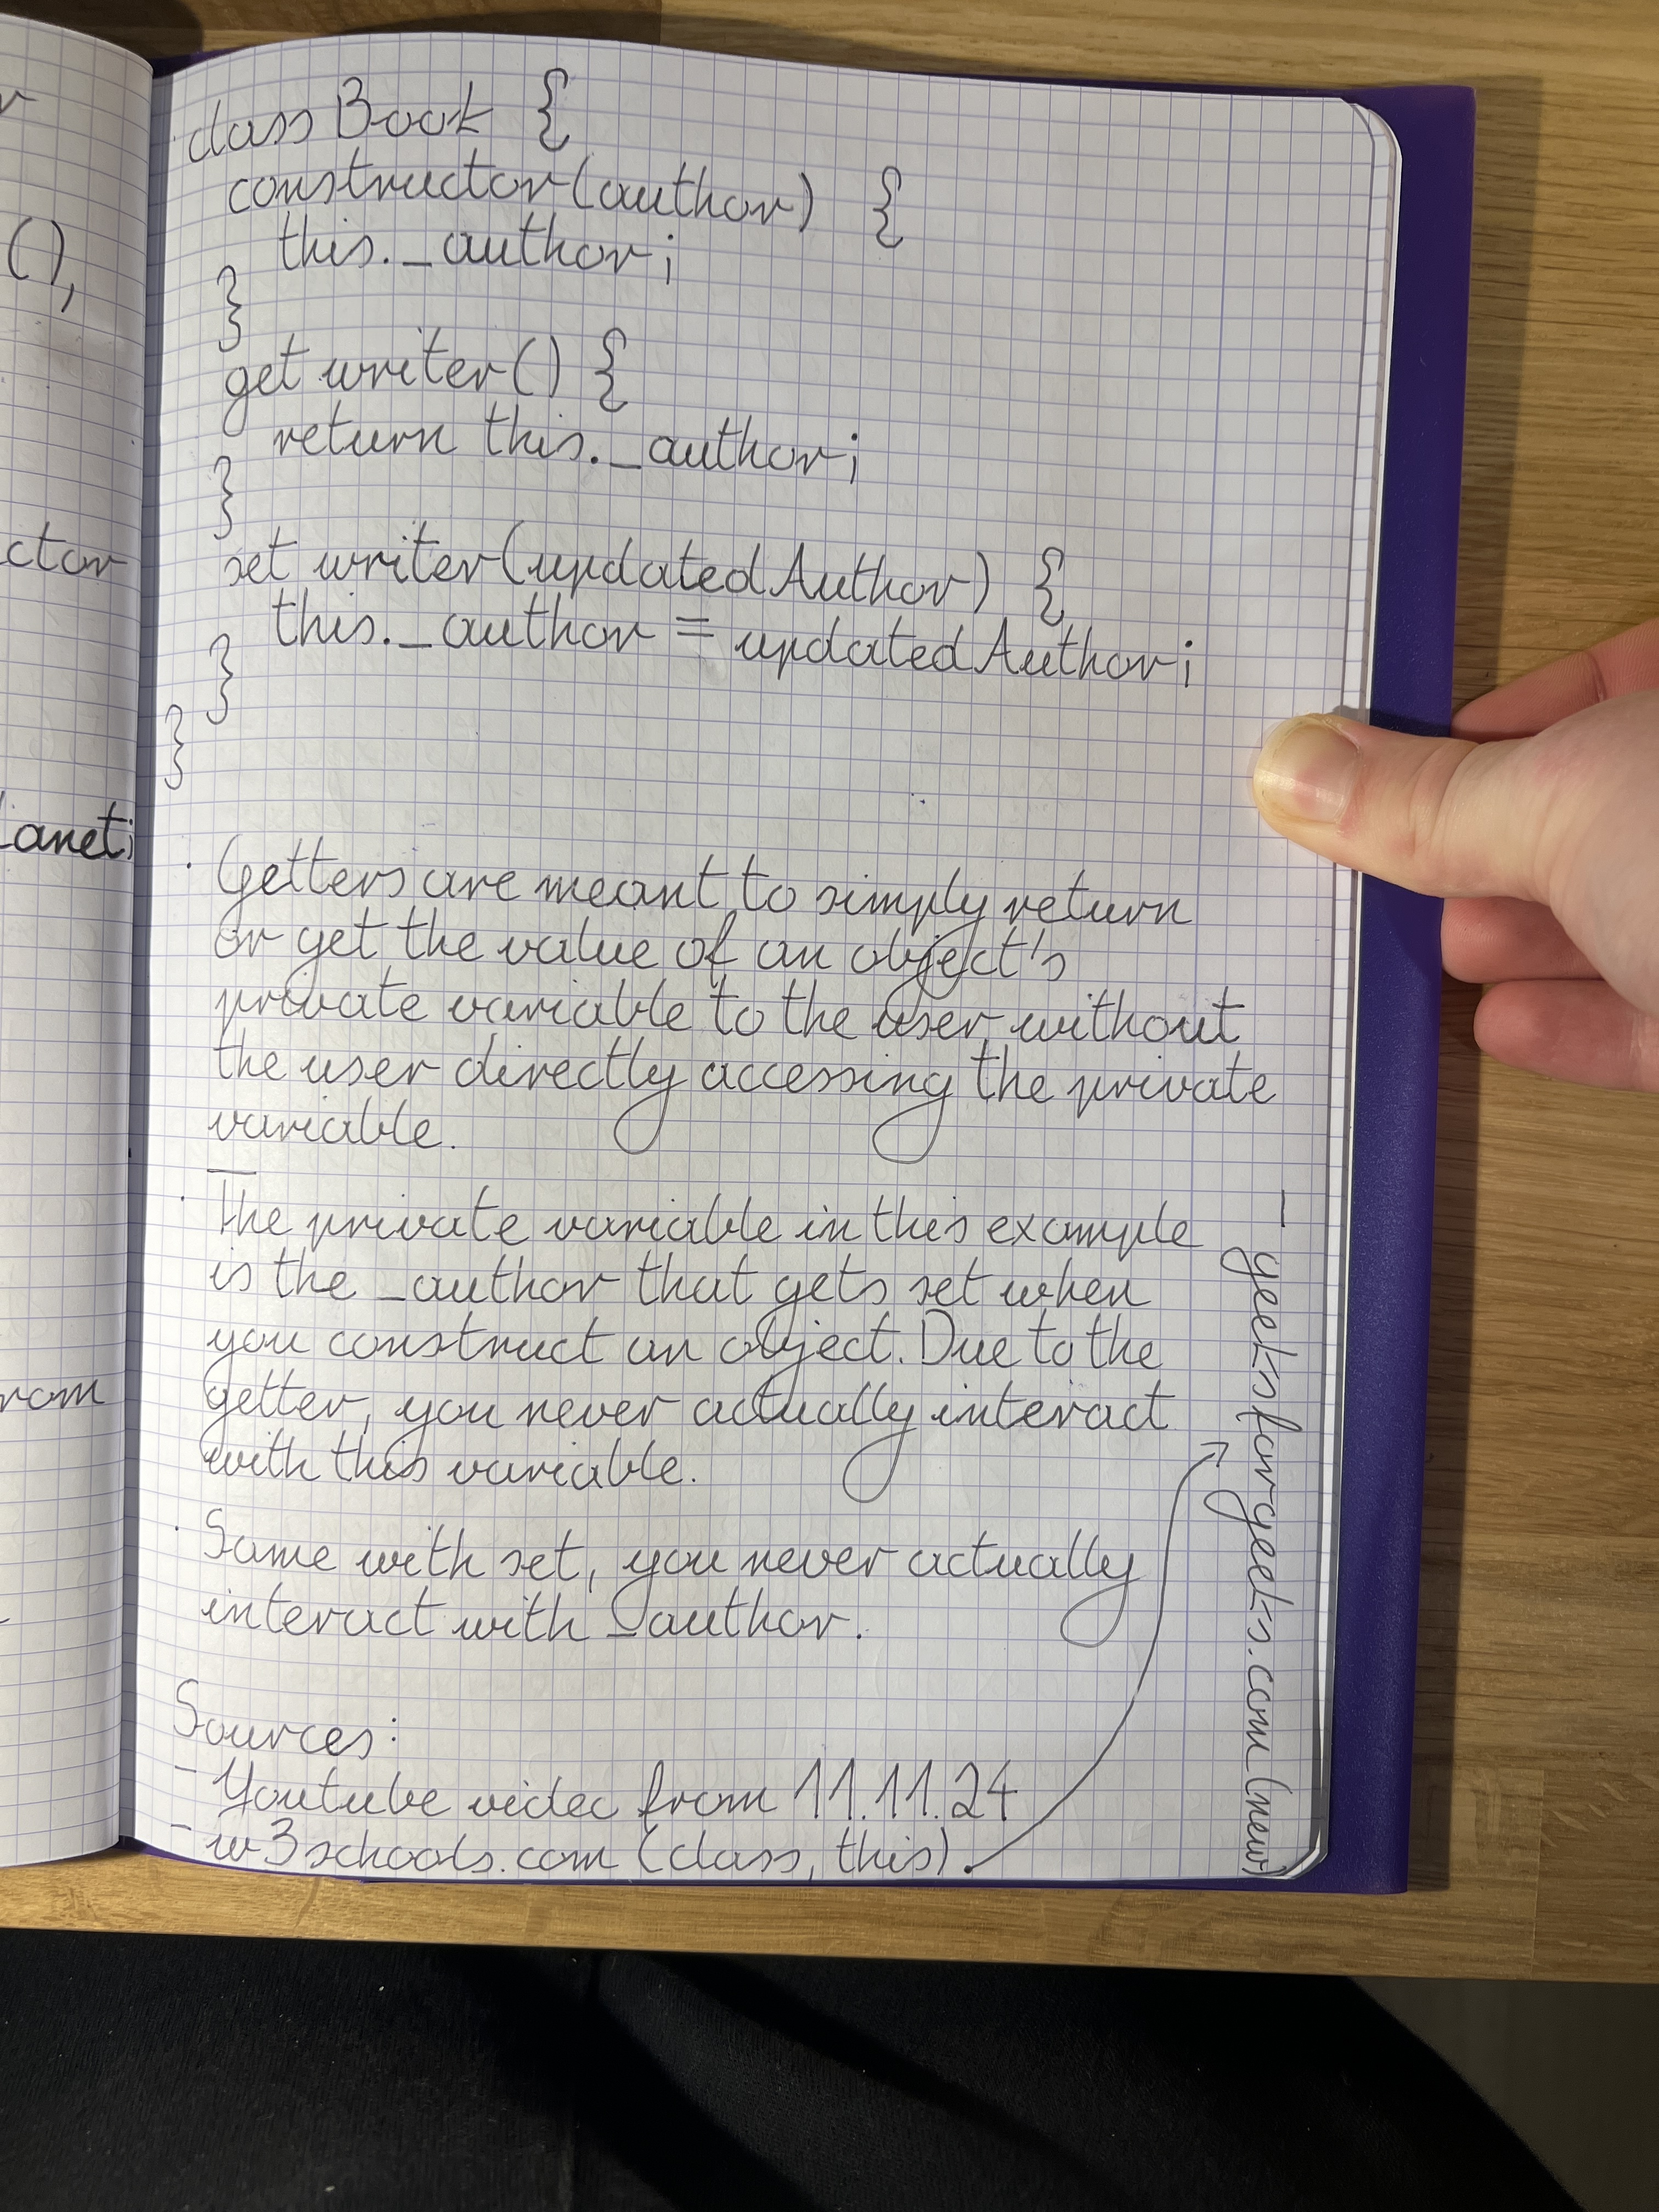 class Book {
constructor(author) {
this._author;
}
get writer() {
return this._author;
}
set writer(updatedAuthor) {
this._author = updatedAuthor;
}
}
· Getters are meant to simply return
or get the value of an object's
private variable to the user, without
the user directly accessing the private
variable.
—
· The private variable in this example
is the _author that gets set when
you construct an object. Due to the
getter, you never actually interact
with this variable.
· Same with set, you never actually
interact with _author.
Sources:
- Youtube video from 11.11.24
- w3schools.com (class, this).
- geeksforgeeks.com (new)
(),
ctor
anet;
rom